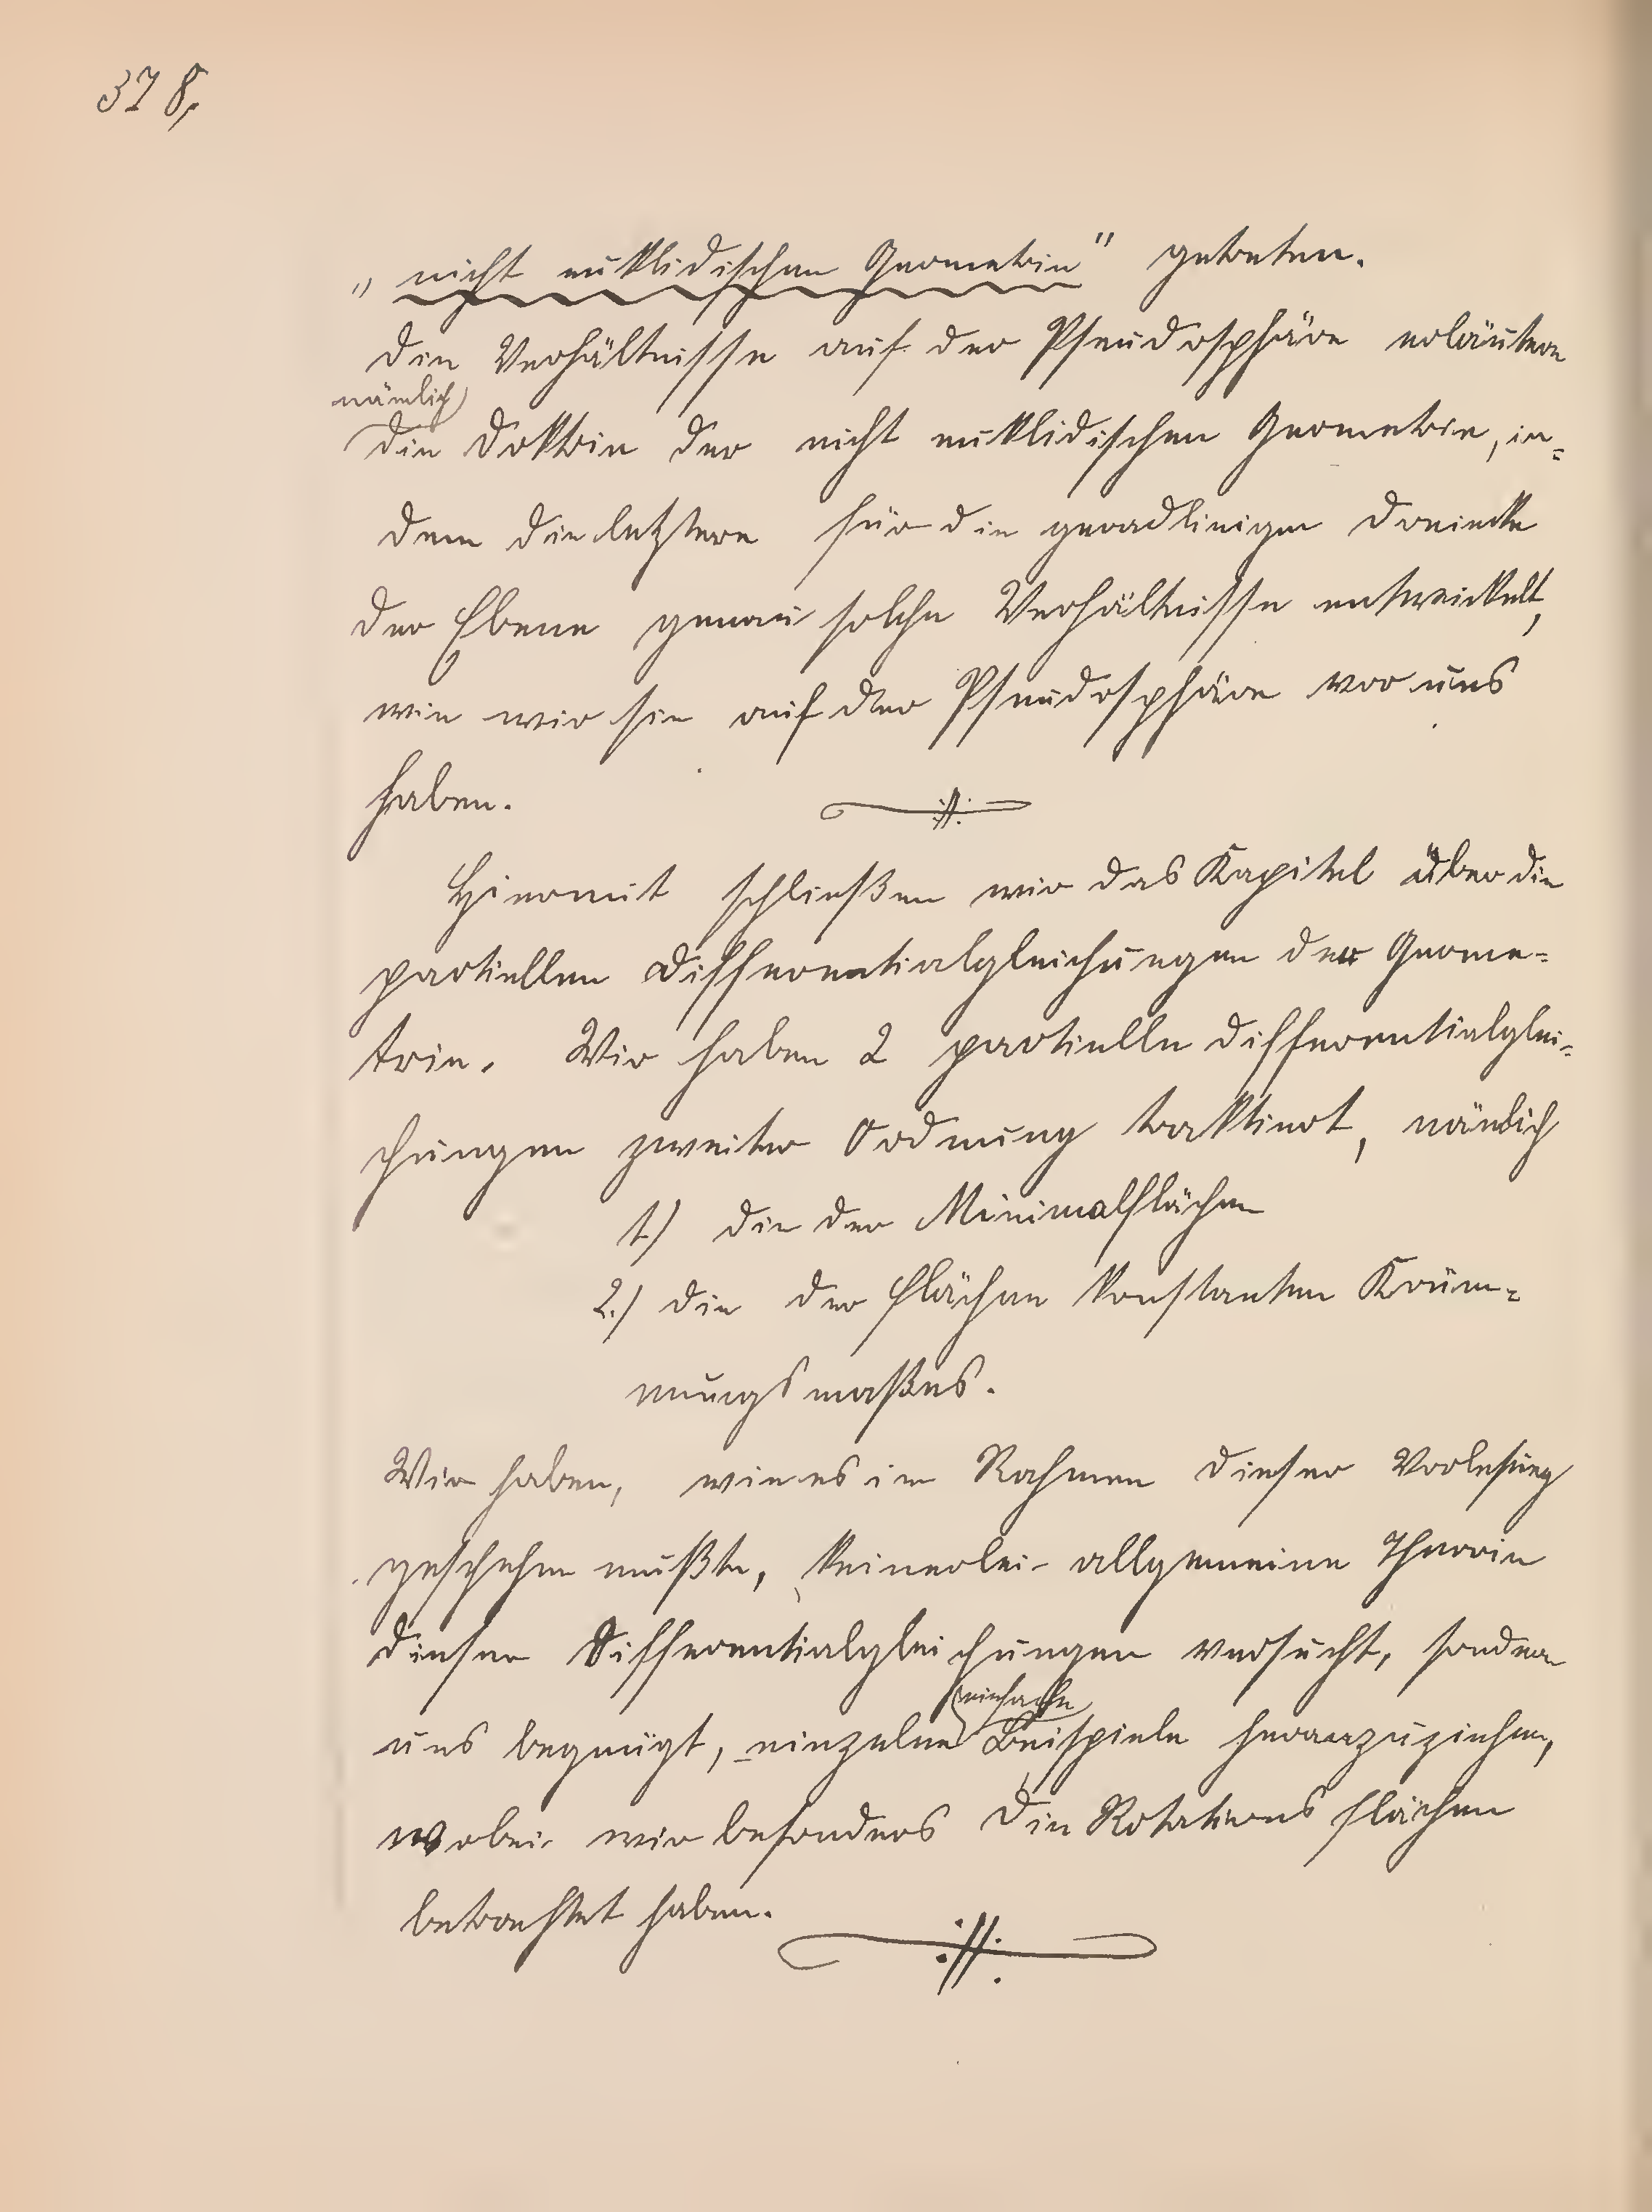 378.
„nicht euklidischen Geometrie" getreten.
Die Verhältnisse auf der Pseudosphäre erläutern
nämlich
die Doktrin der nicht euklidischen Geometrie, in-
dem die letztere für die geradlinigen Dreiecke
der Ebene genau solche Verhältnisse entwickelt,
wie wir sie auf der Pseudosphäre vor uns
haben.
Hiermit schließen wir das Kapitel über die
partiellen Differentialgleichungen der Geome-
trie. Wir haben 2 partielle Differentialglei-
chungen zweiter Ordnung traktiert, nämlich
1.) die der Minimalflächen
2.) die der Flächen konstanten Krüm-
mungsmaßes.
Wir haben, wie es im Rahmen dieser Vorlesung
geschehen mußte, keinerlei allgemeine Theorie
dieser Differentialgleichungen versucht, sondern
einfache
uns begnügt, einzelne Beispiele heranzuziehen,
wobei wir besonders die Rotationsflächen
betrachtet haben.